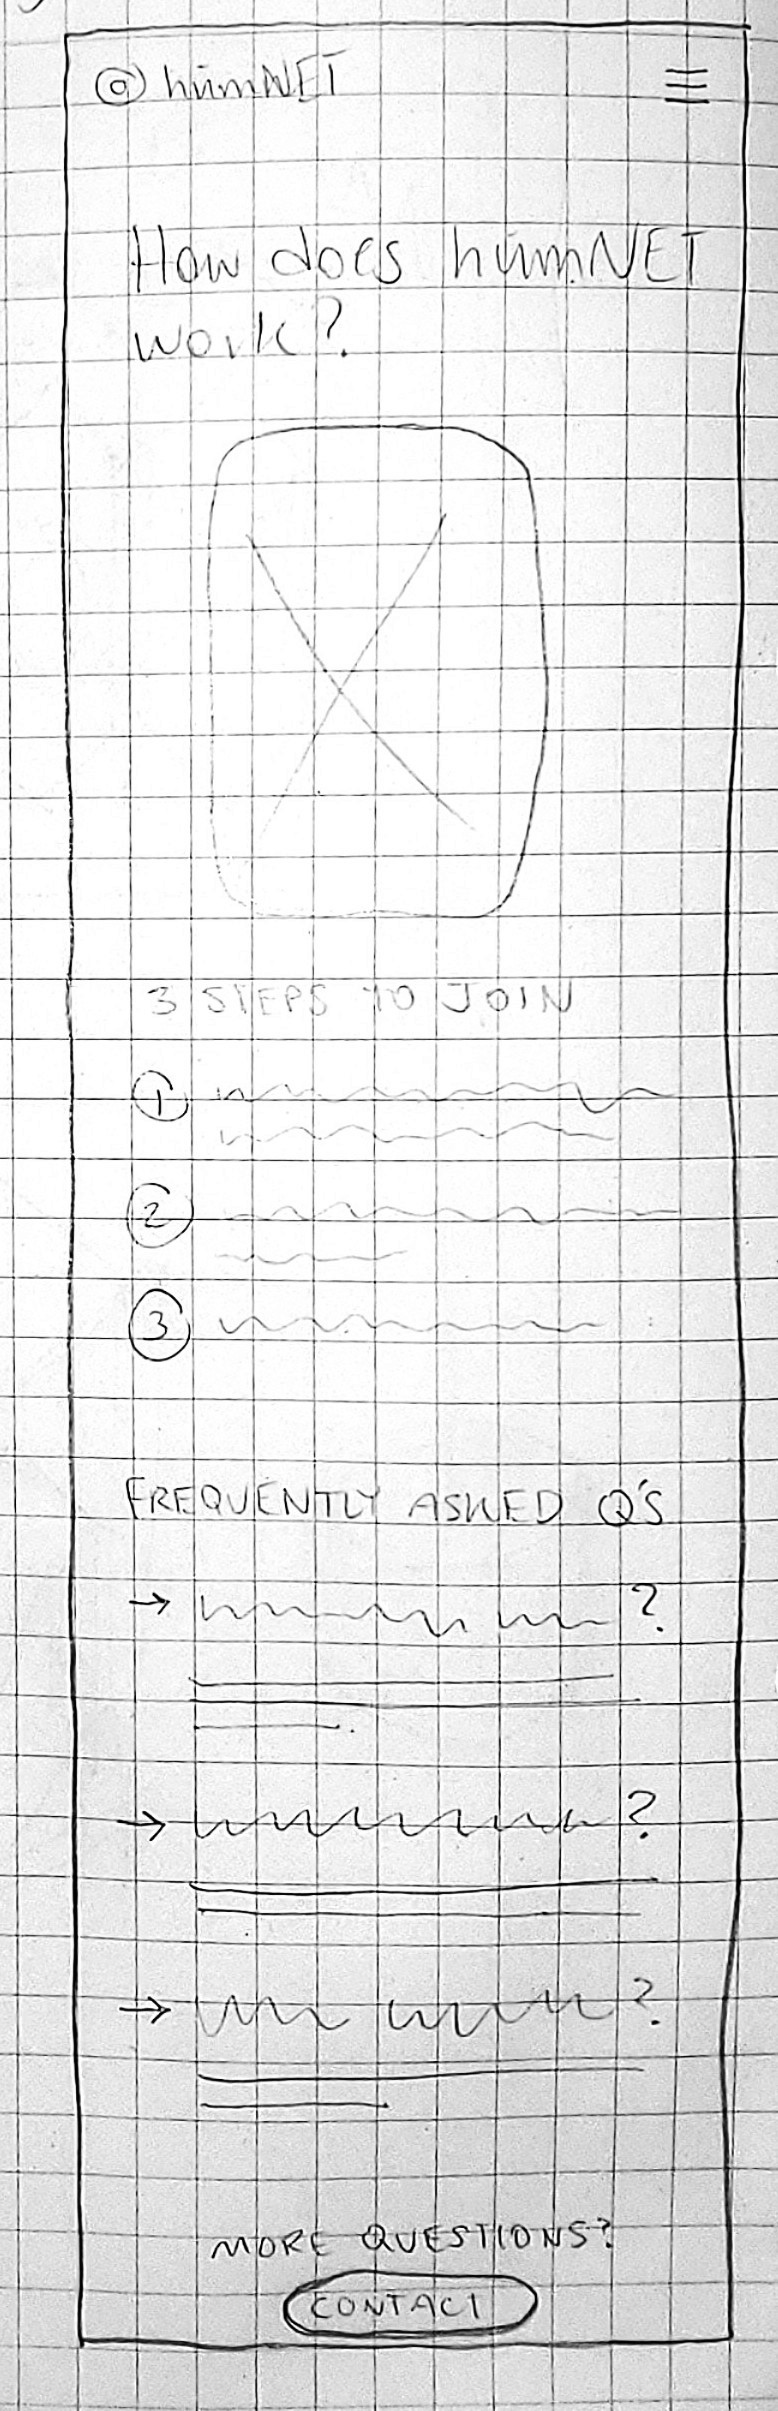 humNET
How does humNET
work?
3 STEPS TO JOIN
1
2
3
FREQUENTLY ASKED Q'S
?
?
?
MORE QUESTIONS?
CONTACT